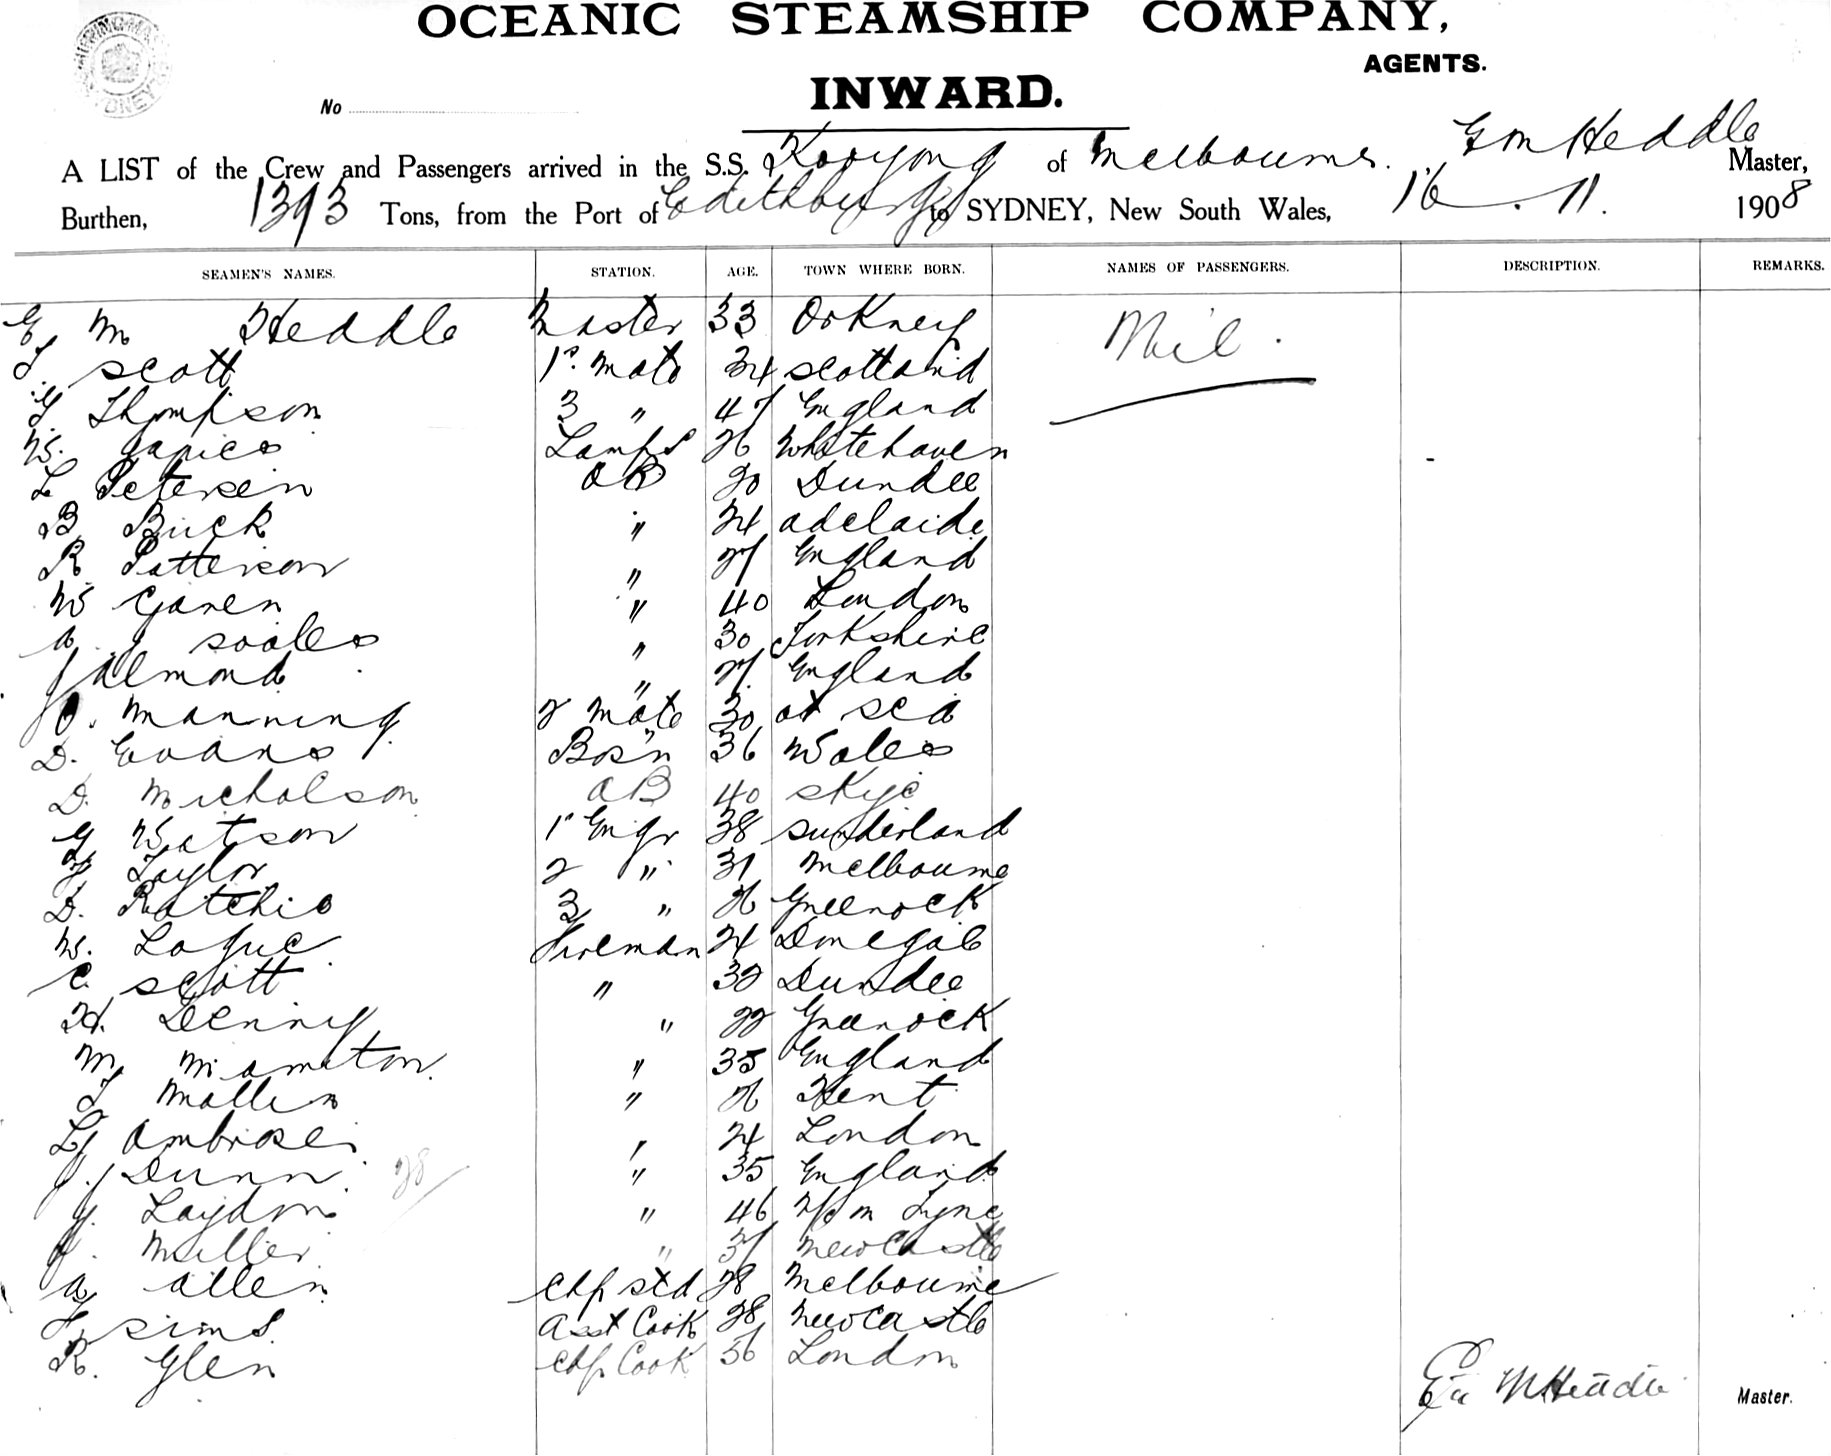 OCEANIC STEAMSHIP COMPANY,
AGENTS.
INWARD.
No
A LIST of the Crew and Passengers arrived in the S.S. Kooyong of Melbourne. G M Heddle Master,
Burthen, 1393 Tons, from the Port of Edithburgh to SYDNEY, New South Wales, 16 . 11. 1908
SEAMEN'S NAMES. STATION. AGE. TOWN WHERE BORN. NAMES OF PASSENGERS. DESCRIPTION. REMARKS.
G M Heddle Master 33 Orkney Nil.
scott 1s. mate 34 scotland
Thompson 3 " 47 England
W. Lamps 26 Whitehaven
L Petersen AB 20 Dundee
B Buck " 24 adelaide
R Patterson " 27 England
W Garen " 40 London
a J " 30 Yorkshire
J almond " 27. England
O. Manning 2 mate 30 at sea
D. Evans Bos'n 36 Wales
D. Nicholson AB 40 skye
G Watson 1s Engr 38 sunderland
Taylor 2 " 31 Melbourne
D. Ratchie 3 " 26 Greenock
W. Logue Fireman 24 Donegal
C. scott " 32 Dundee
H. Denny " 22 Greenock
M " 35 England
T Mallin " 26 Kent
Ambrose " 24 London
J. Dunn. " 35 England
28
J. Laydon " 46 Tyne
J. Miller " 37 newcastle
a allen chf std 28 Melbourne
sims asst Cook 28 newcastle
R. Glen chf Cook 56 London
G M Heddle Master.